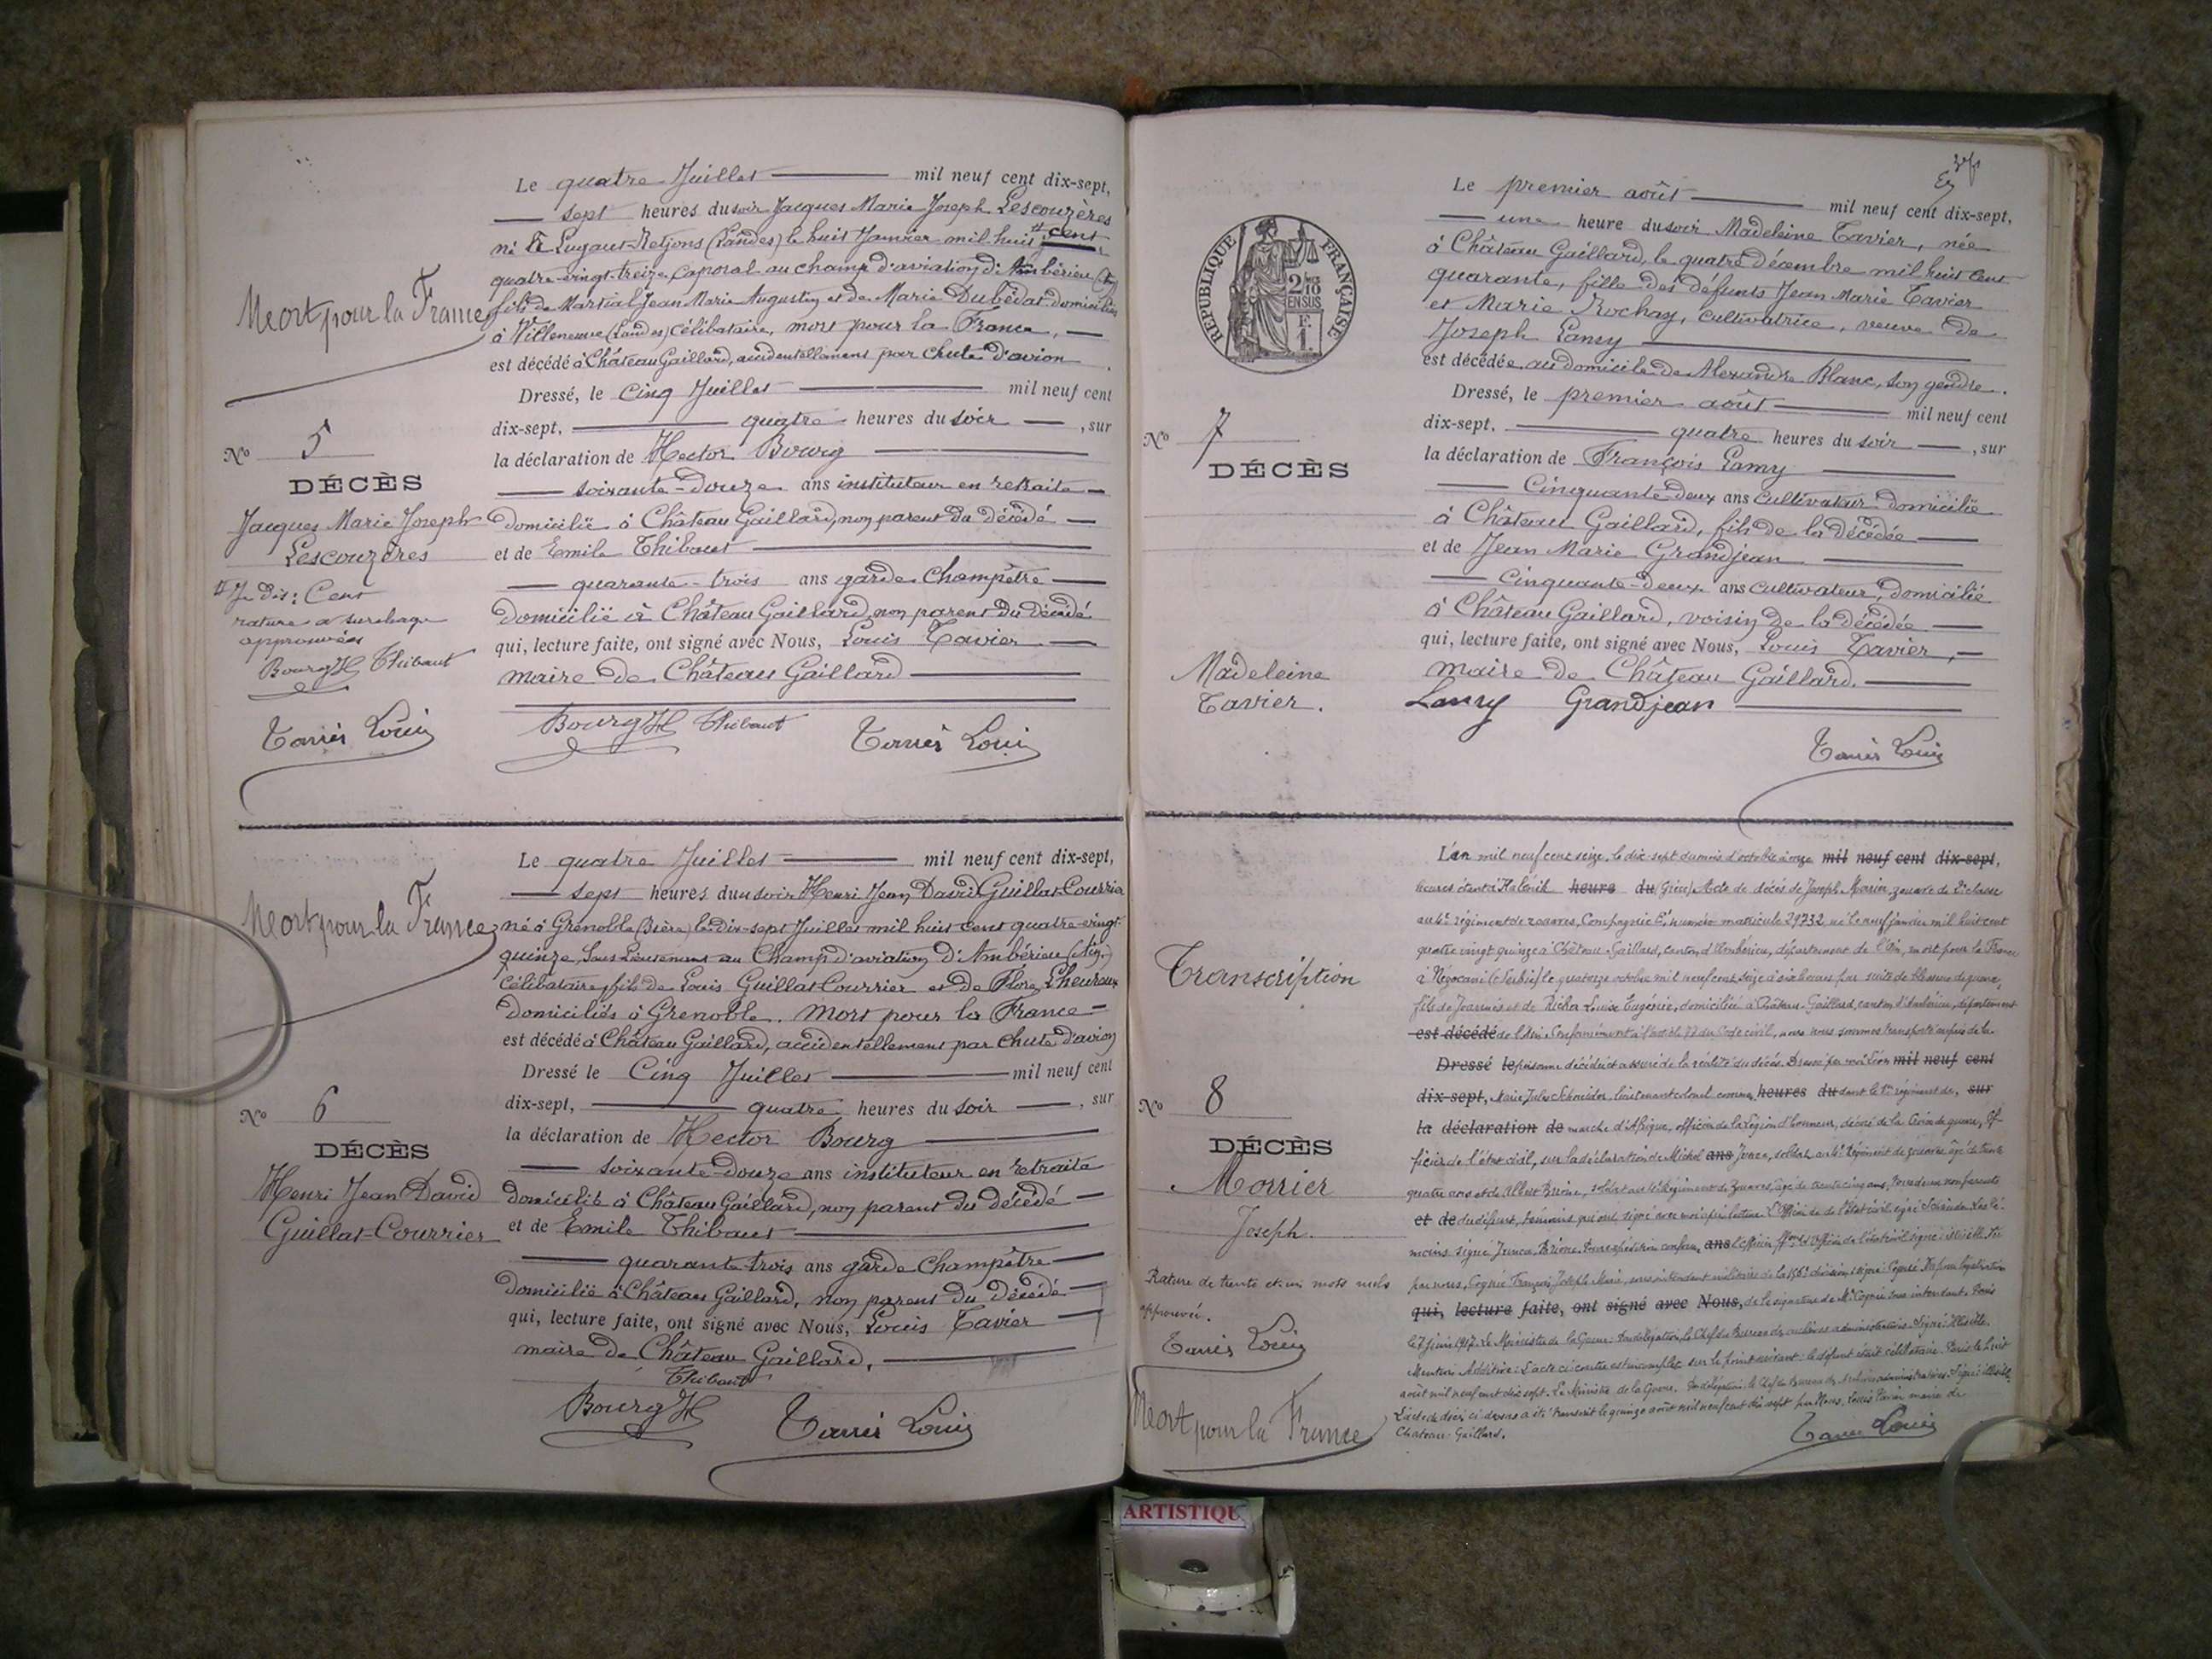 Le quatre Juillet mil neuf cent dix-sept,
sept heures du soir Jacques Marie Joseph Lescouzères
né à Lugaut-Retjons (Landes) le huit Janvier mil huit cent
quatre-vingt-treize, Caporal au champ d'aviation d'Ambérieu
fils de Martial Jean Marie Augustin et de Marie Dubédat domiciliés
à Villeneuve (Landes) célibataire, mort pour la France,
est décédé à Château Gaillard, accidentellement par chute d'avion
Dressé, le Cinq Juillet mil neuf cent
dix-sept, quatre heures du soir, sur
la déclaration de Hector Bourg
soixante-douze ans instituteur en retraite
domicilié à Château Gaillard, non parent du décédé
et de Emile Thibaut
quarante-trois ans garde Champêtre
domicilié à Château Gaillard, non parent du décédé
qui, lecture faite, ont signé avec Nous, Louis Tavier
maire de Château Gaillard
Bourg H Thibaut Tavier Louis
Mort pour la France
No 5
DÉCÈS
Jacques Marie Joseph
Lescouzères
Je dis: Cent
rature a surchage
approuvées
Bourg H Thibaut
Tavier Louis
Le quatre Juillet mil neuf cent dix-sept,
sept heures du soir Henri Jean David Guillat-Courrier
né à Grenoble (Isère) le dix-sept Juillet mil huit cent quatre-vingt-
quinze, Sous Lieutenant au Champ d'aviation d'Ambérieu (Ain)
Célibataire, fils de Louis Guillat-Courrier et de Flore Lheureux
domiciliés à Grenoble. Mort pour la France
est décédé à Château Gaillard, accidentellement par chute d'avion
Dressé le Cinq Juillet mil neuf cent
dix-sept, quatre heures du soir, sur
la déclaration de Hector Bourg
soixante-douze ans instituteur en retraite
domicilié à Château Gaillard, non parent du décédé
et de Emile Thibaut
quarante trois ans garde Champêtre
domicilié à Château Gaillard, non parent du décédé
qui, lecture faite, ont signé avec Nous, Louis Tavier
maire de Château Gaillard.
Thibaut
Bourg H Tavier Louis
Mort pour la France
No 6
DÉCÈS
Henri Jean David
Guillat-Courrier
Le premier août mil neuf cent dix-sept,
une heure du soir Madeleine Tavier, née
à Château Gaillard, le quatre décembre mil huit cent
quarante, fille des défunts Jean Marie Tavier
et Marie Rochay, cultivatrice, veuve de
Joseph Lamy
est décédée au domicile de Alexandre Blanc, son gendre.
Dressé, le premier août mil neuf cent
dix-sept, quatre heures du soir, sur
la déclaration de François Lamy
Cinquante deux ans cultivateur domicilié
à Château Gaillard, fils de la décédée
et de Jean Marie Grandjean
Cinquante-deux ans cultivateur, domicilié
à Château Gaillard, voisin de la décédée
qui, lecture faite, ont signé avec Nous, Louis Tavier,
maire de Château Gaillard.
Lamy Grandjean
Tavier Louis
RÉPUBLIQUE FRANÇAISE
2/10 EN SUS
F. 1.
No 7
DÉCÈS
Madeleine
Tavier.
L'an mil neuf cent seize, le dix-sept du mois d'octobre à onze mil neuf cent dix-sept,
heures étant à heure du (Grèce) Acte de décès de Joseph Morier, zouave de 2e classe
au 4e régiment de zouaves, Compagnie numéro matricule 29732 né le neuf janvier mil huit cent
quatre vingt quinze à Château-Gaillard, canton d'Ambérieu, département de l'Ain, mort pour la France
à Négocani (Serbie) le quatorze octobre mil neuf cent seize à six heures par suite de blessures de guerre,
fils de Joannès et de Richer Louise Eugénie, domiciliés à Château-Gaillard, canton d'Ambérieu, département
est décédé de l'Ain. Conformément à l'article 77 du Code civil, nous nous sommes transporté auprès de la
Dressé le personne décédée et assuré de la réalité du décès. Dressé par moi Léon mil neuf cent
dix-sept, Marie Jules Schneider, lieutenant colonel heures du dant le 1er régiment de, sur
la déclaration de marche d'Afrique, officier de la Légion d'honneur, décoré de la Croix de guerre, Of-
ficier de l'état civil, sur la déclaration de Michel ans Junca, soldat au 4e Régiment de zouaves âgé de trente
quatre ans et de Albert Brione, soldat au 4e Régiment de Zouaves, âgé de trente cinq ans,
et de du défunt, témoins qui ont signé avec moi après lecture L'Officier de l'état civil signé Schneider Les té-
moins signé Junca, Brione. Pour expédition conforme, ans l'Officier de l'état civil signé illisible. Vu
par nous, Cognié François Joseph Marie, sous intendant militaire de la 156e division, signé Cognié. Vu pour légalisation
qui, lecture faite, ont signé avec Nous, de la signature de Mr Cognié sous intendant. Paris
le 7 juin 1917. Le Ministre de la Guerre. Par délégation, le Chef du Bureau des archives administratives. Signé: Illisible.
Mention Additive: L'acte ci contre est incomplet sur le point suivant: le défunt était célibataire. Paris le huit
août mil neuf cent dix sept. Le Ministre de la Guerre. Par délégation, le Chef du Bureau des Archives administratives. Signé: illisible.
L'acte de décès ci dessus a été transcrit le quinze août mil neuf cent dix sept par Nous, Louis Tavier maire de
Château-Gaillard. Tavier Louis
Transcription
No 8
DÉCÈS
Morrier
Joseph.
Rature de trente et un mots nuls
approuvé.
Tavier Louis
Mort pour la France
ARTISTIQU